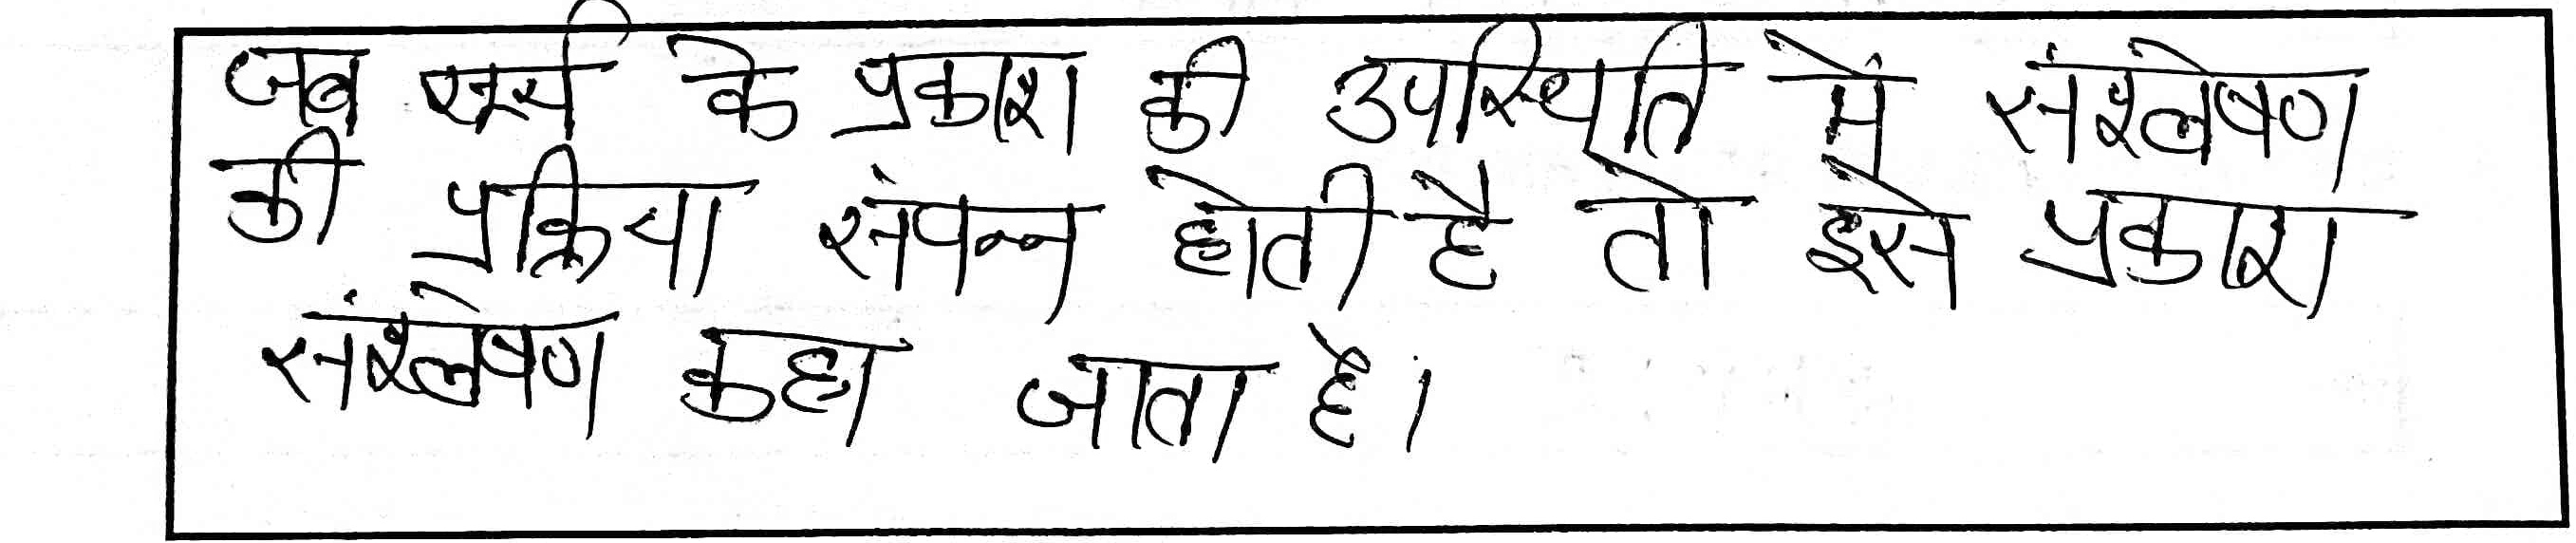 जब सूर्य के प्रकाश की उपस्थिति में संश्लेषण
की प्रक्रिया संपन्न होती है तो इसे प्रकाश
संश्लेषण कहा जाता है।